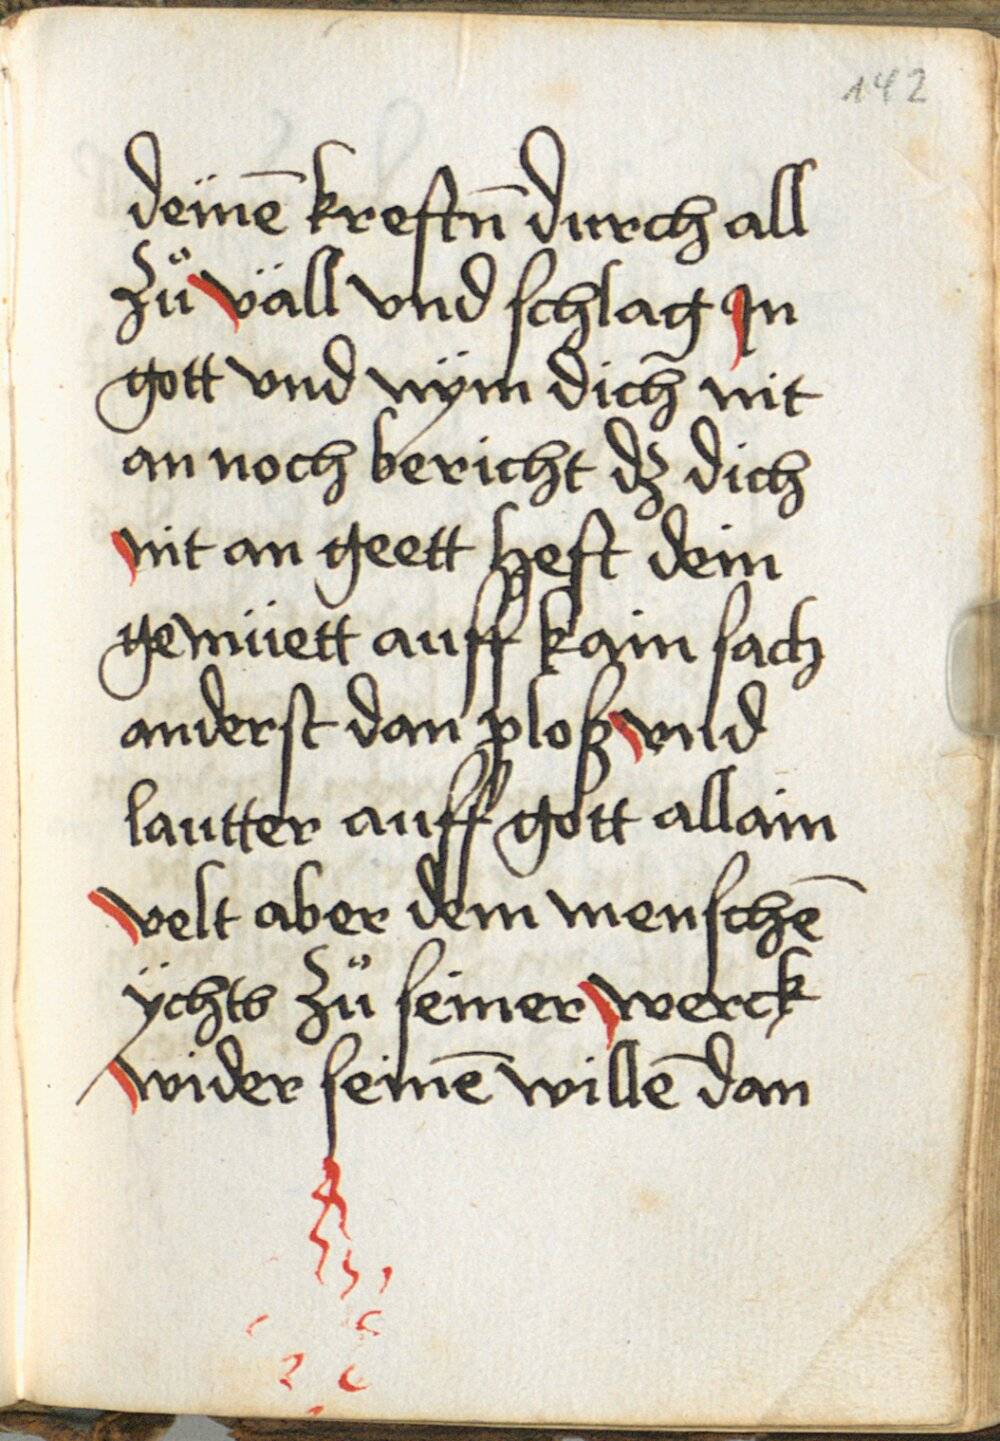 142
deinē kreftn̄ durch all
zů väll vnd schlag Jn
gott vnd nÿm dich nit
an noch bericht dz dich
nit an geett heft dein
gemüett auff kain sach
anderst dan ploß vnd
lautter auff gott allain
velt aber dem menschē
ÿchts zů seiner werck
wider seinē willē dan